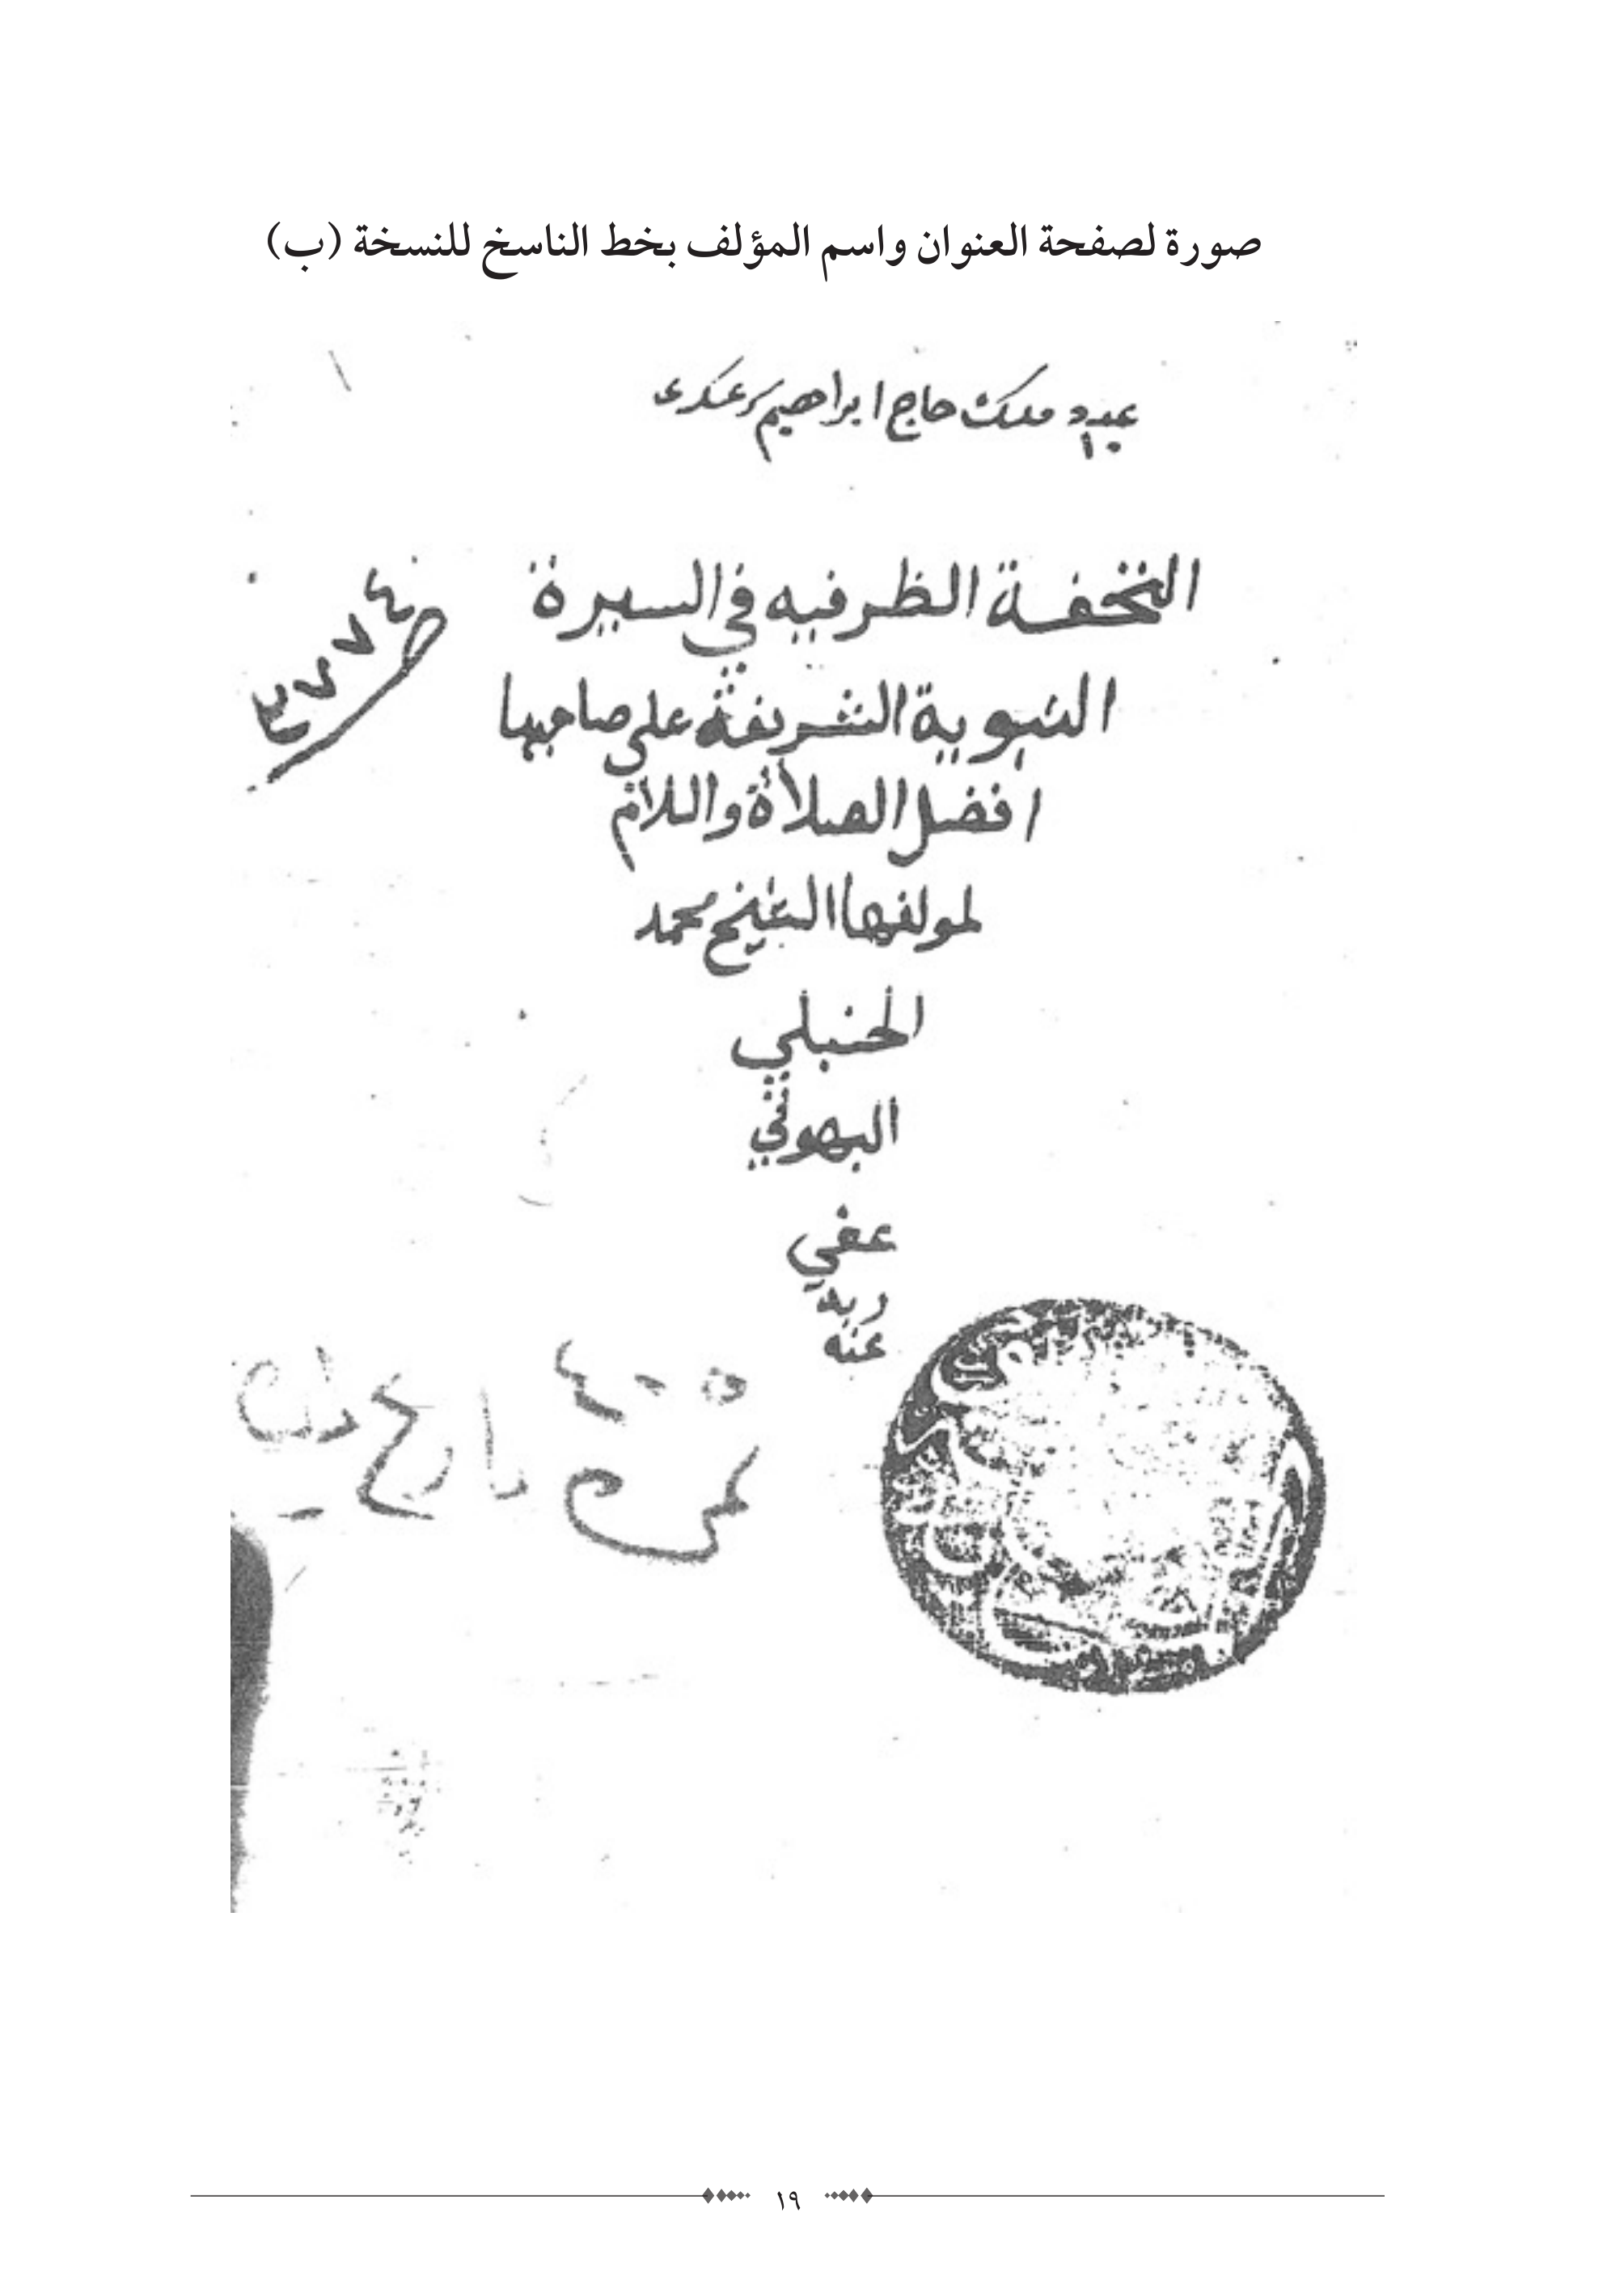 صورة لصفحة العنوان واسم المؤلف بخط الناسخ للنسخة (ب)
ملك حاج ابراهيم
التحفة الظرفيه في السيرة
النبوية الشريفة على صاحبها
افضل الصلاة واللام
لمولفها الشيخ محمد
الحنبلي
البهوتي
عفي
ربه
عنه
٣٧٧٤
تاريخ
١٩